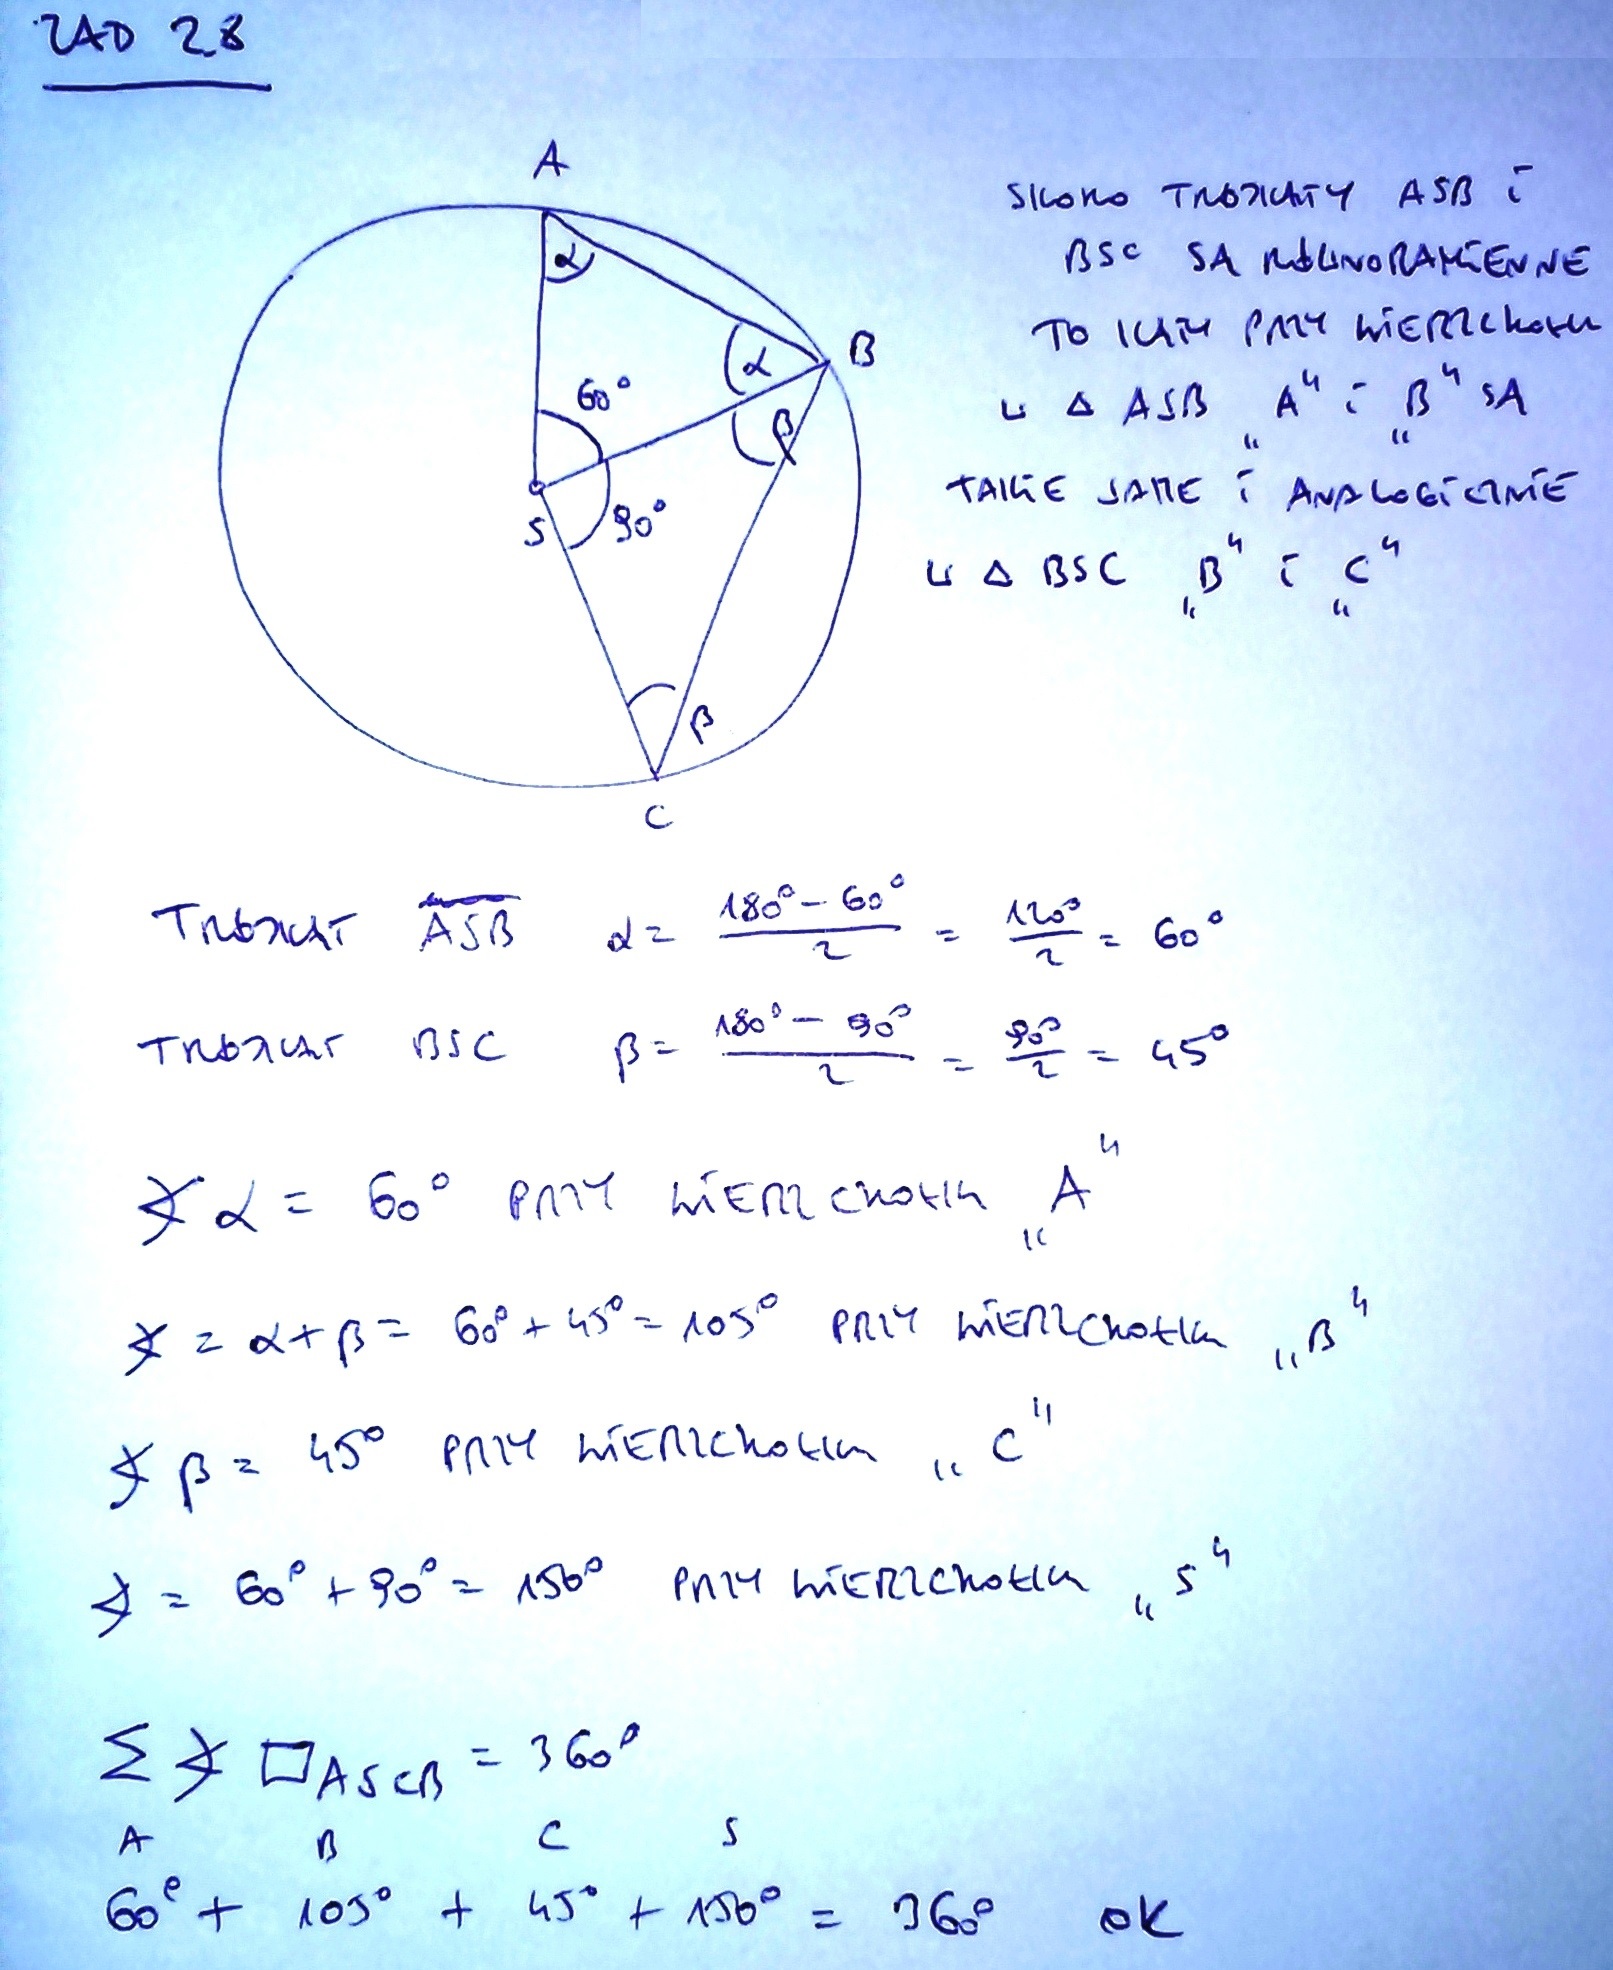 ZAD 28
A
α
B
α
60°
β
S
90°
β
C
SKORO TRÓJKĄTY ASB i
BSC SĄ RÓWNORAMIENNE
TO KĄTY PRZY WIERZCHOŁKU
W Δ ASB „A" i „B" SĄ
TAKIE SAME i ANALOGICZNIE
W Δ BSC „B" i „C"
TRÓJKĄT ASB α = (180° - 60°)/2 = 120°/2 = 60°
TRÓJKĄT BSC β = (180° - 90°)/2 = 90°/2 = 45°
∢ α = 60° PRZY WIERZCHOŁKU „A"
∢ = α + β = 60° + 45° = 105° PRZY WIERZCHOŁKU „B"
∢ β = 45° PRZY WIERZCHOŁKU „C"
∢ = 60° + 90° = 150° PRZY WIERZCHOŁKU „S"
Σ ∢ □ASCB = 360°
A B C S
60° + 105° + 45° + 150° = 360° OK